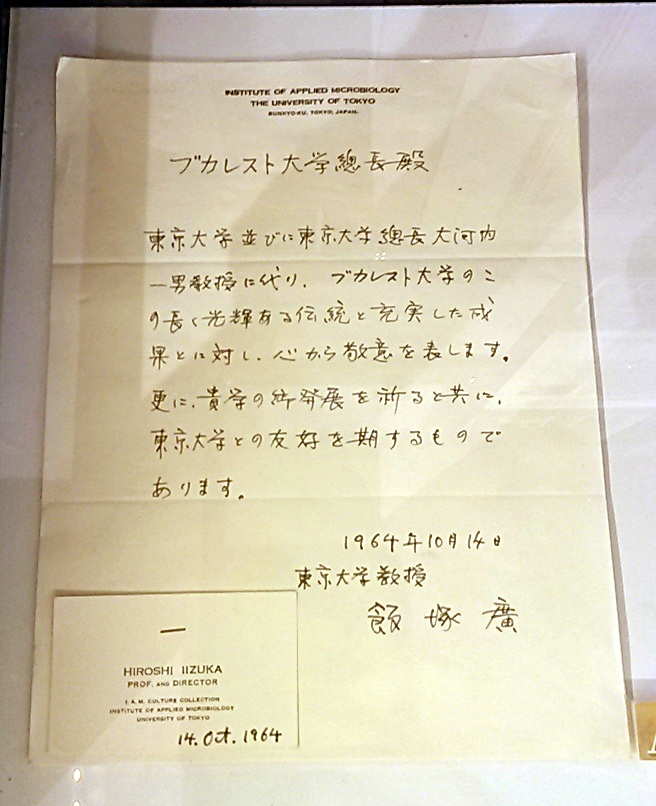 INSTITUTE OF APPLIED MICROBIOLOGY
THE UNIVERSITY OF TOKYO
BUNKYO-KU, TOKYO, JAPAN.
ブカレスト大学總長殿
東京大学並びに東京大学總長大河内
一男教授に代り、ブカレスト大学のこ
の長く光輝ある伝統と充実した成
果とに対し、心から敬意を表します。
更に、貴学の御発展を祈ると共に、
東京大学との友好を期するもので
あります。
1964年10月14日
東京大学教授
飯塚廣
HIROSHI IIZUKA
PROF. AND DIRECTOR
I. A. M. CULTURE COLLECTION
INSTITUTE OF APPLIED MICROBIOLOGY
UNIVERSITY OF TOKYO
14. Oct. 1964